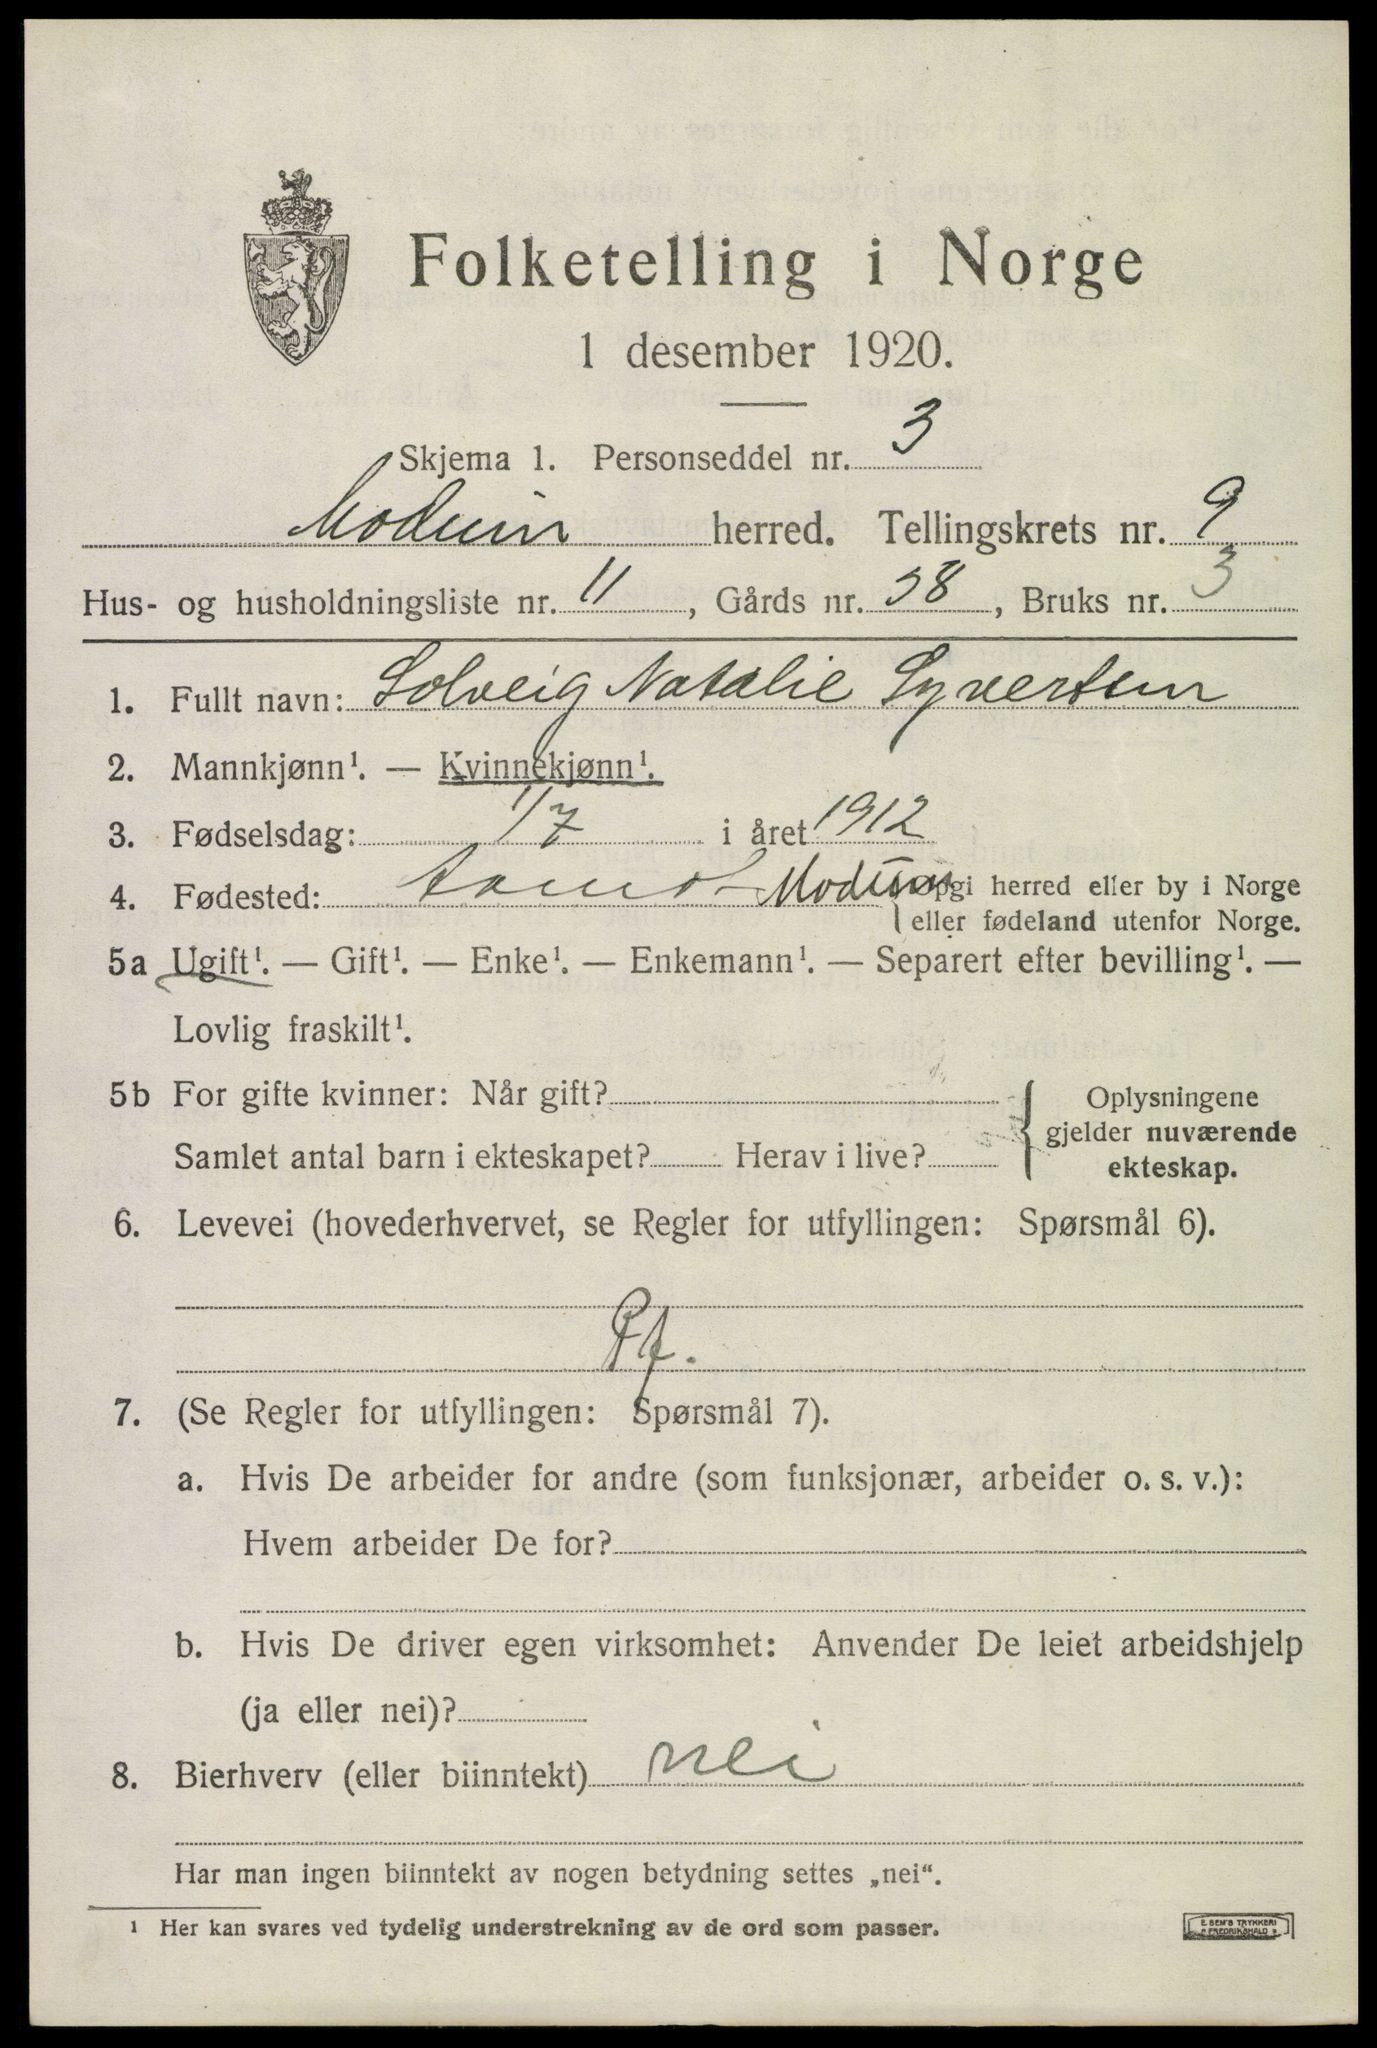 Folketelling i Norge
1 desember 1920.
Skjema 1. Personseddel nr. 3
Modum herred. Tellingskrets nr. 9
Hus- og husholdningsliste nr. 11, Gårds nr. 58, Bruks nr. 3
1. Fullt navn: Solveig Natalie Syversen
2. Mannkjønn¹. — Kvinnekjønn¹.
3. Fødselsdag: 1/7 i året 1912
4. Fødested: Aamot Modum Opgi herred eller by i Norge
eller fødeland utenfor Norge.
5a Ugift¹. — Gift¹. — Enke¹. — Enkemann¹. — Separert efter bevilling¹. —
Lovlig fraskilt¹.
5b For gifte kvinner: Når gift?
Samlet antal barn i ekteskapet? Herav i live?
Oplysningene
gjelder nuværende
ekteskap.
6. Levevei (hovederhvervet, se Regler for utfyllingen: Spørsmål 6).
7. (Se Regler for utfyllingen: Spørsmål 7).
a. Hvis De arbeider for andre (som funksjonær, arbeider o. s. v.):
Hvem arbeider De for?
b. Hvis De driver egen virksomhet: Anvender De leiet arbeidshjelp
(ja eller nei)?
8. Bierhverv (eller biinntekt) nei
Har man ingen biinntekt av nogen betydning settes „nei“.
¹ Her kan svares ved tydelig understrekning av de ord som passer.
E. SEM'S TRYKKERI
FREDRIKSHALD